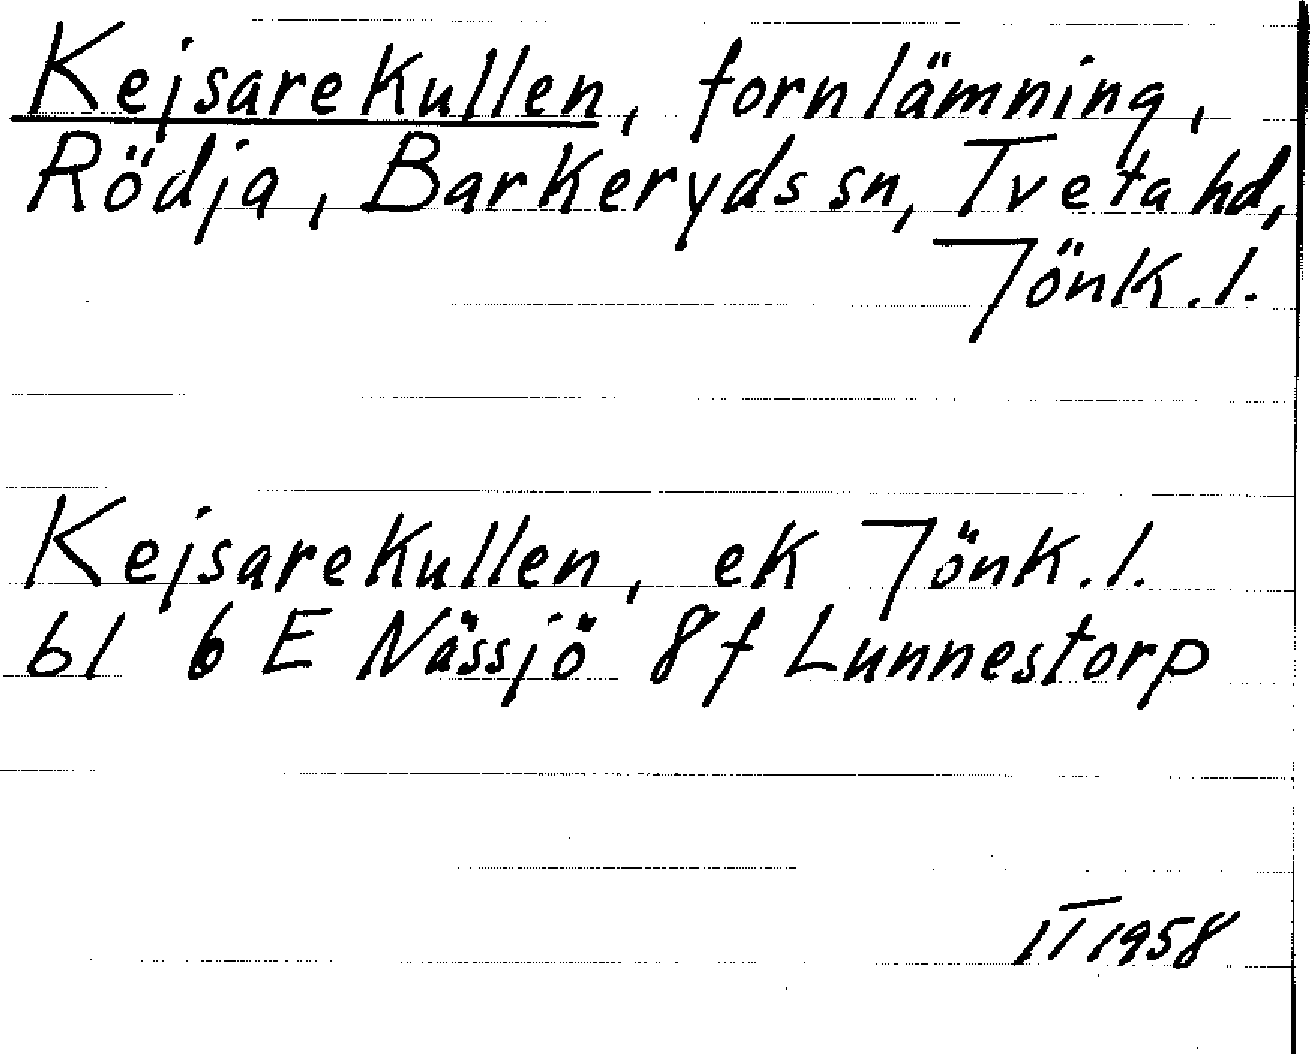 Kejsarekullen, fornlämning,
Rödja, Barkeryds sn, Tveta hd,
Jönk. l.
Kejsarekullen, ek Jönk. l.
bl 6 E Nässjö 8 f Lunnestorp
IT 1958